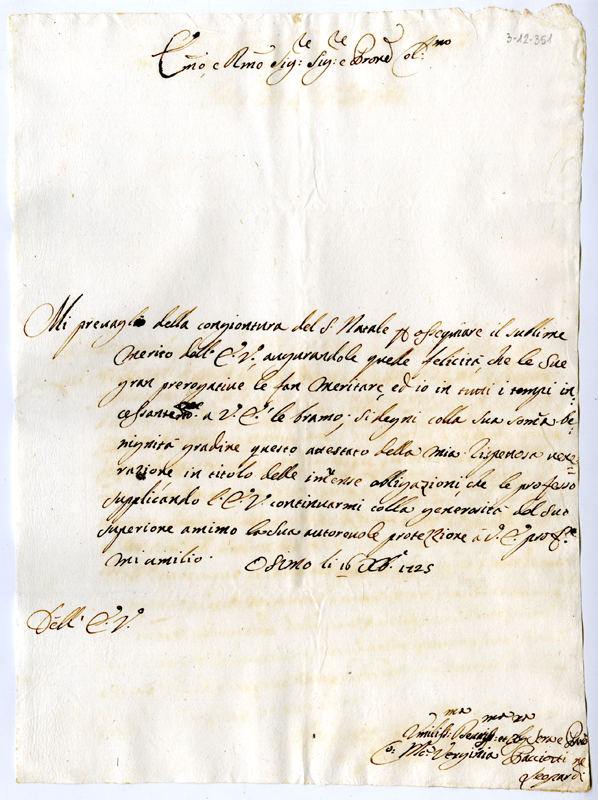 3-12-351
Em̃o, e Rm̃o Sig:re Sig:re e Prone Col:mo
Mi prevaglio della congiontura del S. Natale p ossequiare il sublime
merito dell' E. V., augurandole quelle felicità, che le Sue
gran prerogative le fan meritare, ed io in tutti i tempi in:
cessante.te a V. E. le bramo; si degni colla sua som̃a be:
nignità gradire questo attestato della mia rispettosa vene=
razione in titolo delle im̃ense obligazioni, che le professo
supplicando l' E. V. continuarmi colla generosità del suo
superiore animo la sua autorevole protezzione à V. E. prof.e
mi umilio. Osimo li 16 Xb.e 1725
Dell' E. V.
Umilis:ma Devotis:ma et Obl:
Ma: Verginia Pacciotti ne
Leopardi